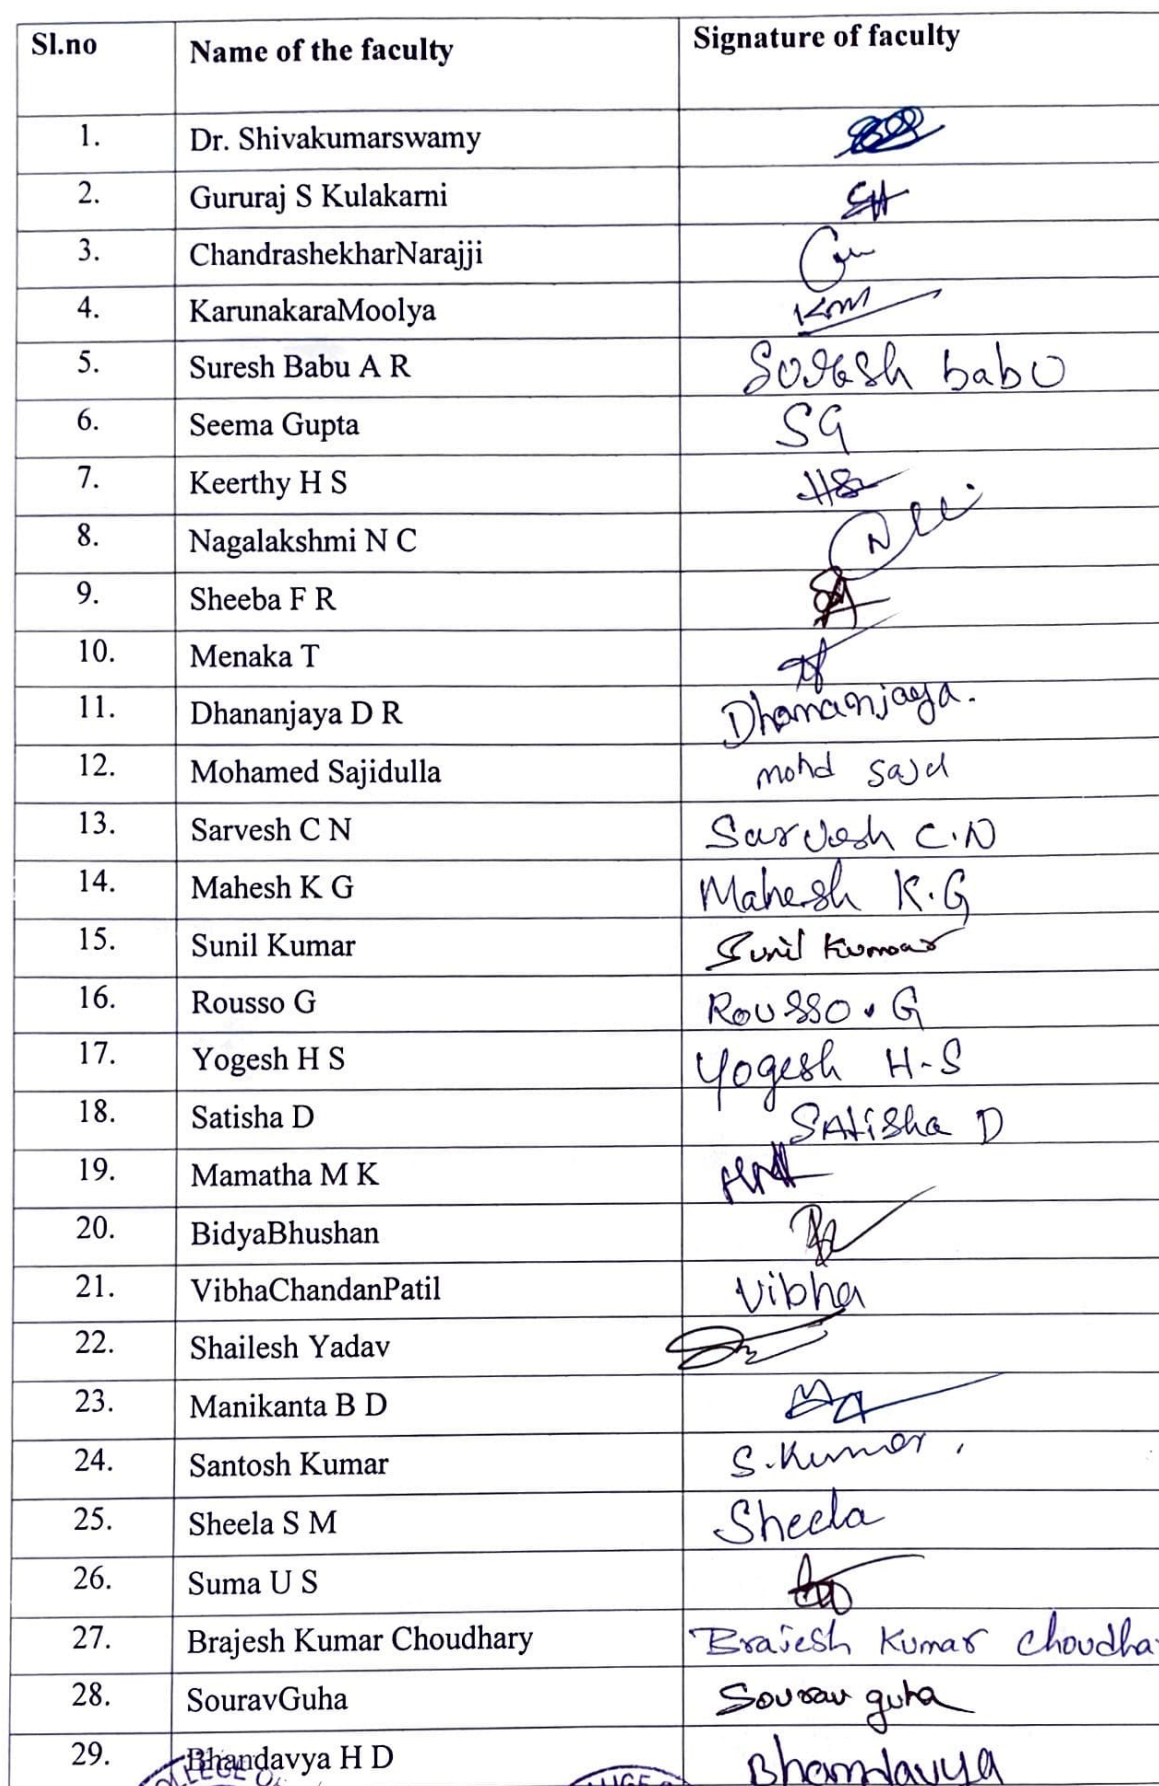 Sl.no Name of the faculty Signature of faculty
1. Dr. Shivakumarswamy
2. Gururaj S Kulakarni
3. ChandrashekharNarajji
4. KarunakaraMoolya
5. Suresh Babu A R Suresh babu
6. Seema Gupta SG
7. Keerthy H S
8. Nagalakshmi N C
9. Sheeba F R
10. Menaka T
11. Dhananjaya D R Dhananjaya.
12. Mohamed Sajidulla mohd
13. Sarvesh C N Sarvesh C.N
14. Mahesh K G Mahesh K.G
15. Sunil Kumar Sunil Kumar
16. Rousso G Rousso. G
17. Yogesh H S Yogesh H-S
18. Satisha D SAtisha D
19. Mamatha M K
20. BidyaBhushan
21. VibhaChandanPatil Vibha
22. Shailesh Yadav
23. Manikanta B D
24. Santosh Kumar S.Kumar,
25. Sheela S M Sheela
26. Suma U S
27. Brajesh Kumar Choudhary Brajesh Kumar Choudha
28. SouravGuha Sourav guha
29. Bhandavya H D Bhandavya